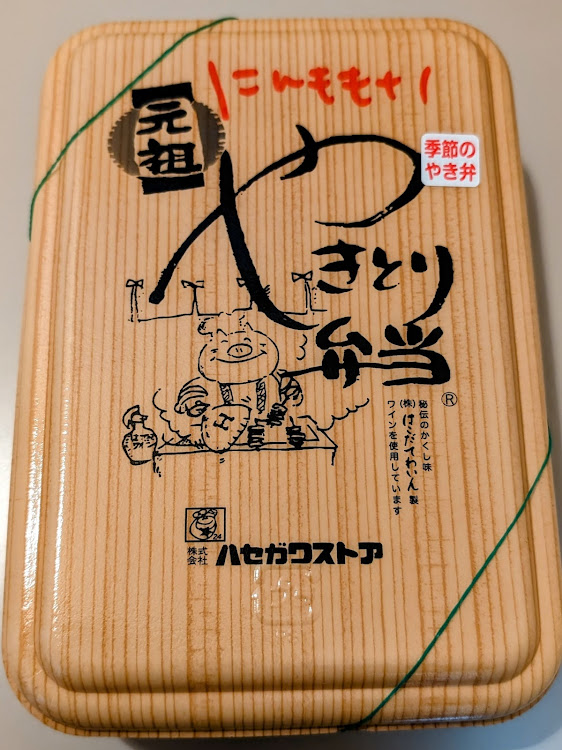 元祖
季節の
やき弁
やきとり
弁当
®
秘伝のかくし味
(株)はこだてわいん製
ワインを使用しています
24
株式会社 ハセガワストア